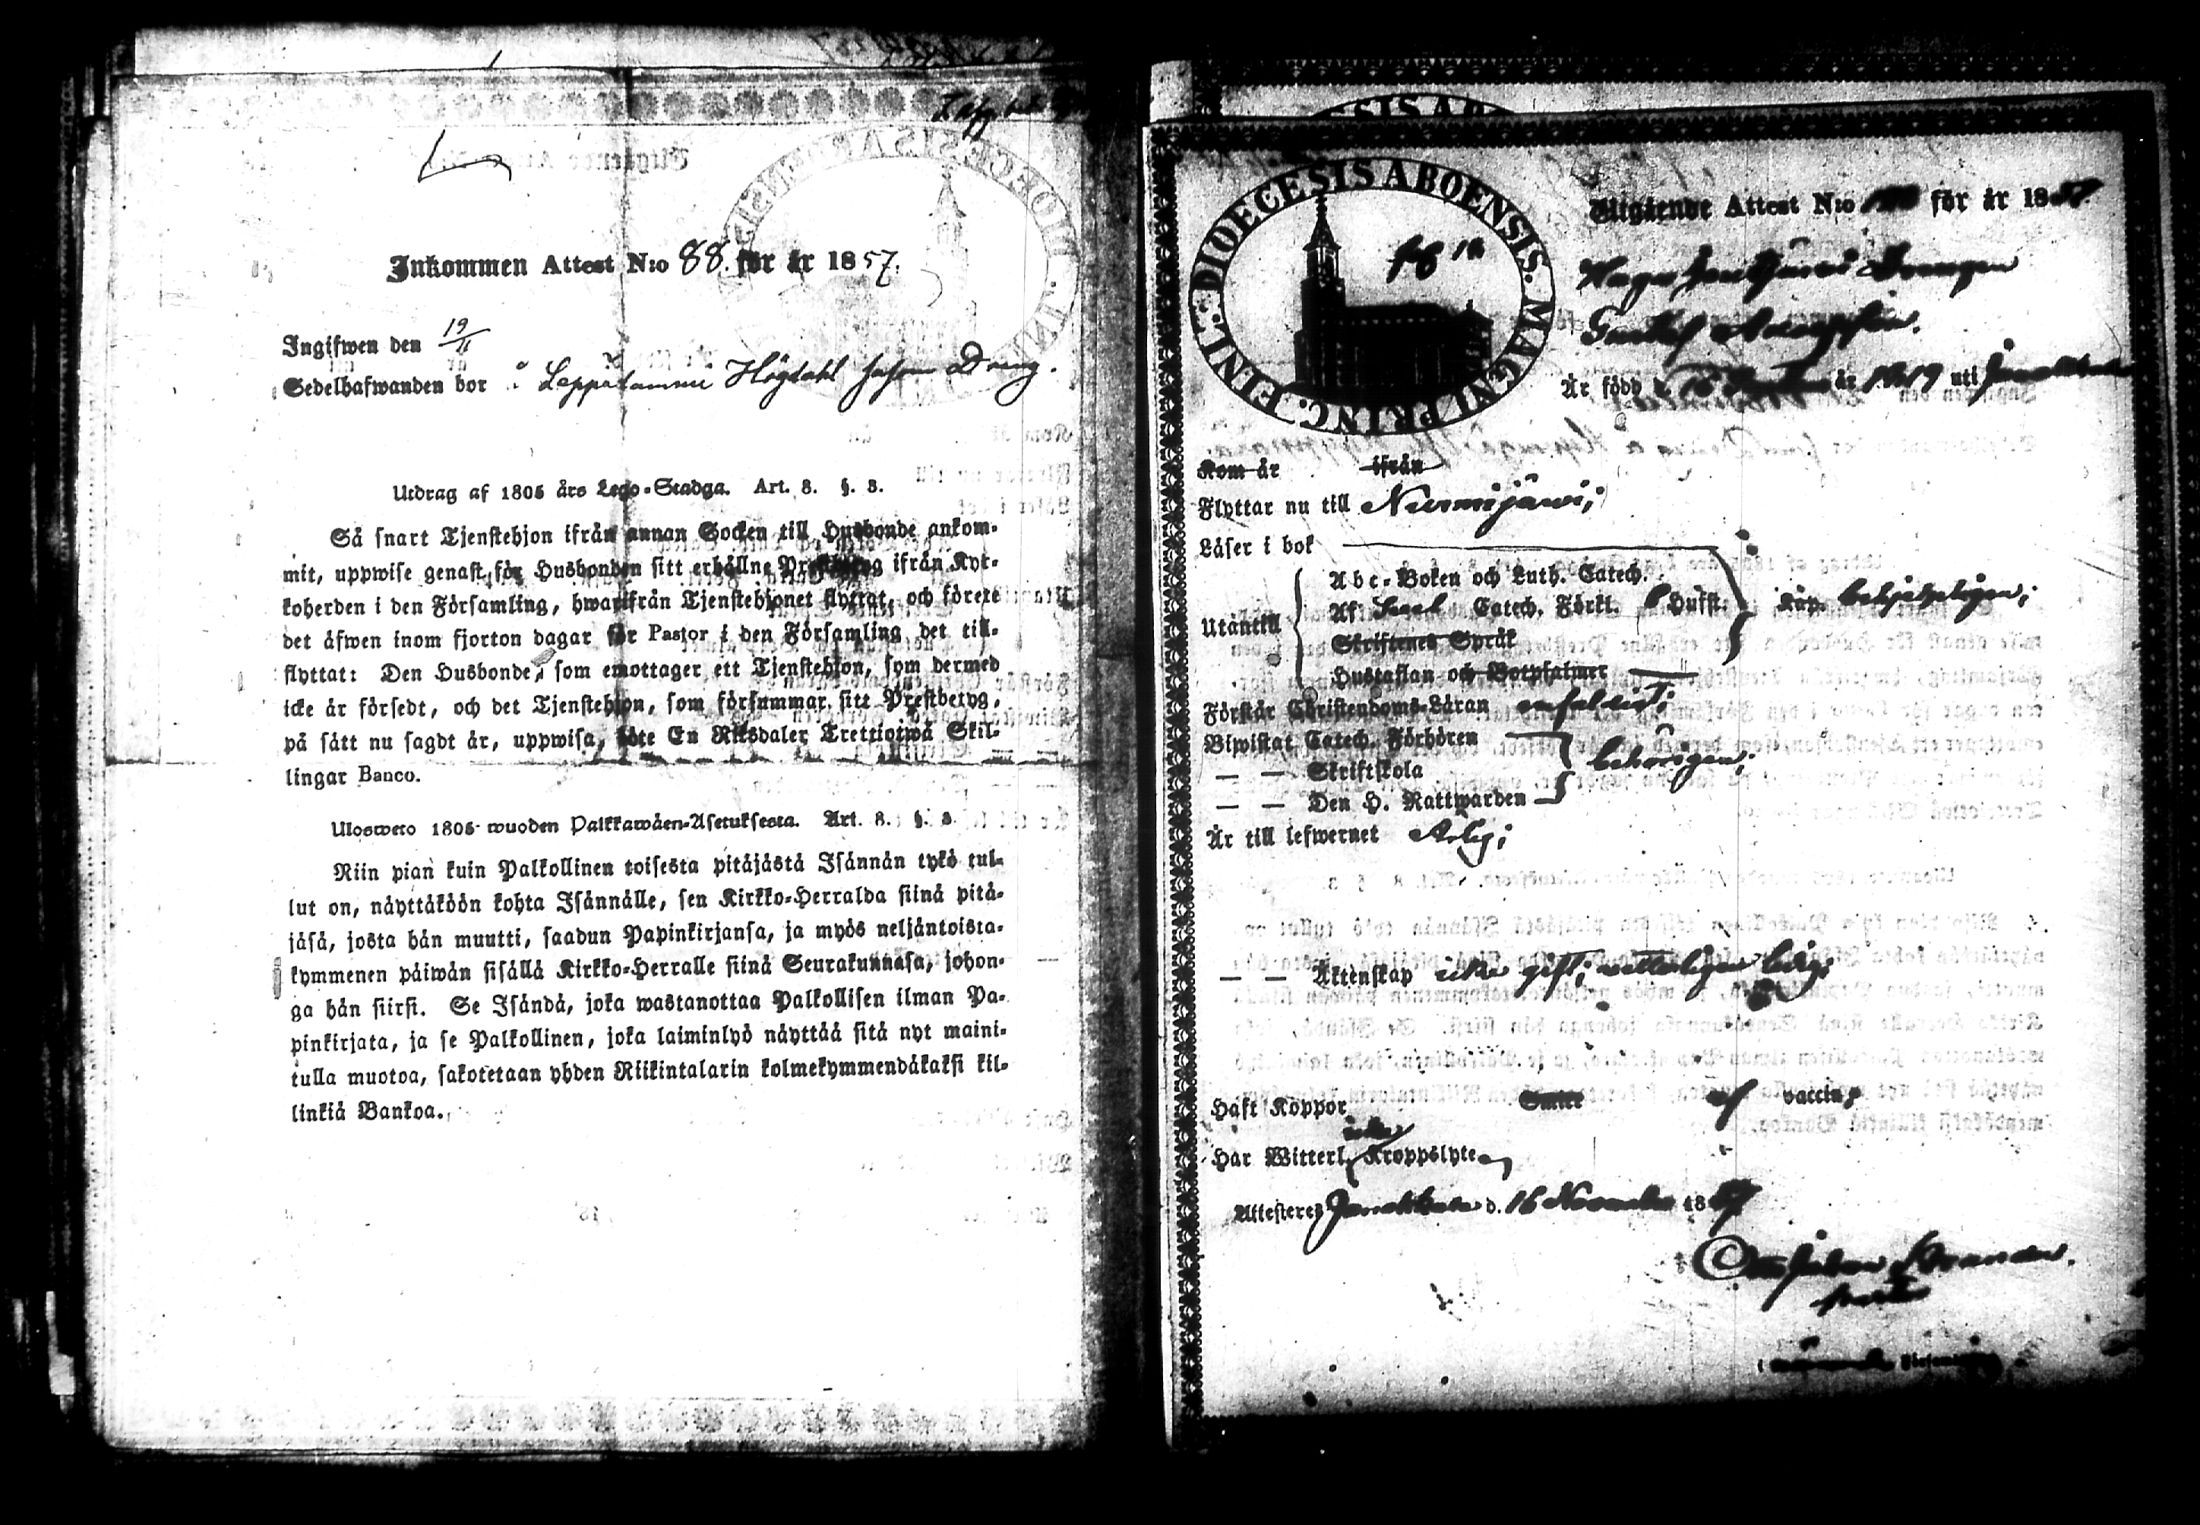 Inkommen Attest N:o 88. för år 1857.
Ingifwen den 19/11
Sedelhafwanden bor å Högdahl såsom Dreng.
Utdrag af 1805 års Lego-Stadga. Art. 8. §. 8.
Så snart Tjenstehjon ifrån annan Socken till Husbonde ankom-
mit, uppwise genast för Husbonden sitt erhållne Prestbetyg ifrån Kyr-
koherden i den Församling, hwarifrån Tjenstehjonet flyttat, och förete
det äfwen inom fjorton dagar för Pastor i den Församling det till-
flyttat: Den Husbonde, som emottager ett Tjenstehjon, som dermed
icke är försedt, och det Tjenstehjon, som försummar sitt Prestbetyg,
på sätt nu sagdt är, uppwisa, böte En Riksdaler Trettiotwå Skil-
lingar Banco.
Ulosweto 1805 wuoden Palkkawäen-Asetuksesta. Art. 8. §. 8.
Niin pian kuin Palkollinen toisesta pitäjästä Isännän tykö tul-
lut on, näyttäköön kohta Isännälle, sen Kirkko-Herralda siinä pitä-
jäsä, josta hän muutti, saadun Papinkirjansa, ja myös neljäntoista-
kymmenen päiwän sisällä Kirkko-Herralle siinä Seurakunnasa, johon-
ga hän siirsi. Se Isändä, joka wastanottaa Palkollisen ilman Pa-
pinkirjata, ja se Palkollinen, joka laiminlyö näyttää sitä nyt maini-
tulla muotoa, sakotetaan yhden Riikintalarin kolmekymmendäkaksi kil-
linkiä Bankoa.
DIOECESIS ABOENSIS. MAGNI PRINC. FINL.
Utgående Attest N:o för år 1857.
Drengen
Gustaf
Är född d. 16 år 1819 uti Janakkala
Kom år ifrån
Flyttar nu till Nurmijärvi;
Läser i bok
Utantill
Abc-Boken och Luth. Catech.
Af Catech. Förkl. Hufst.
Skriftenes Språk
Hustaflan och Botpsalmer
Förstår Christendoms-Läran enfaldigt;
Biwistat Catech. Förhören
— — Skriftskola
— — Den H. Nattwarden
behörigen;
Är till lefwernet Ärlig;
— — Äktenskap icke gift; ledig;
Haft Koppor Smitt af vaccin;
Har Witterl. icke Kroppslyte
Attesteres Janakkala d. 16 November 1857